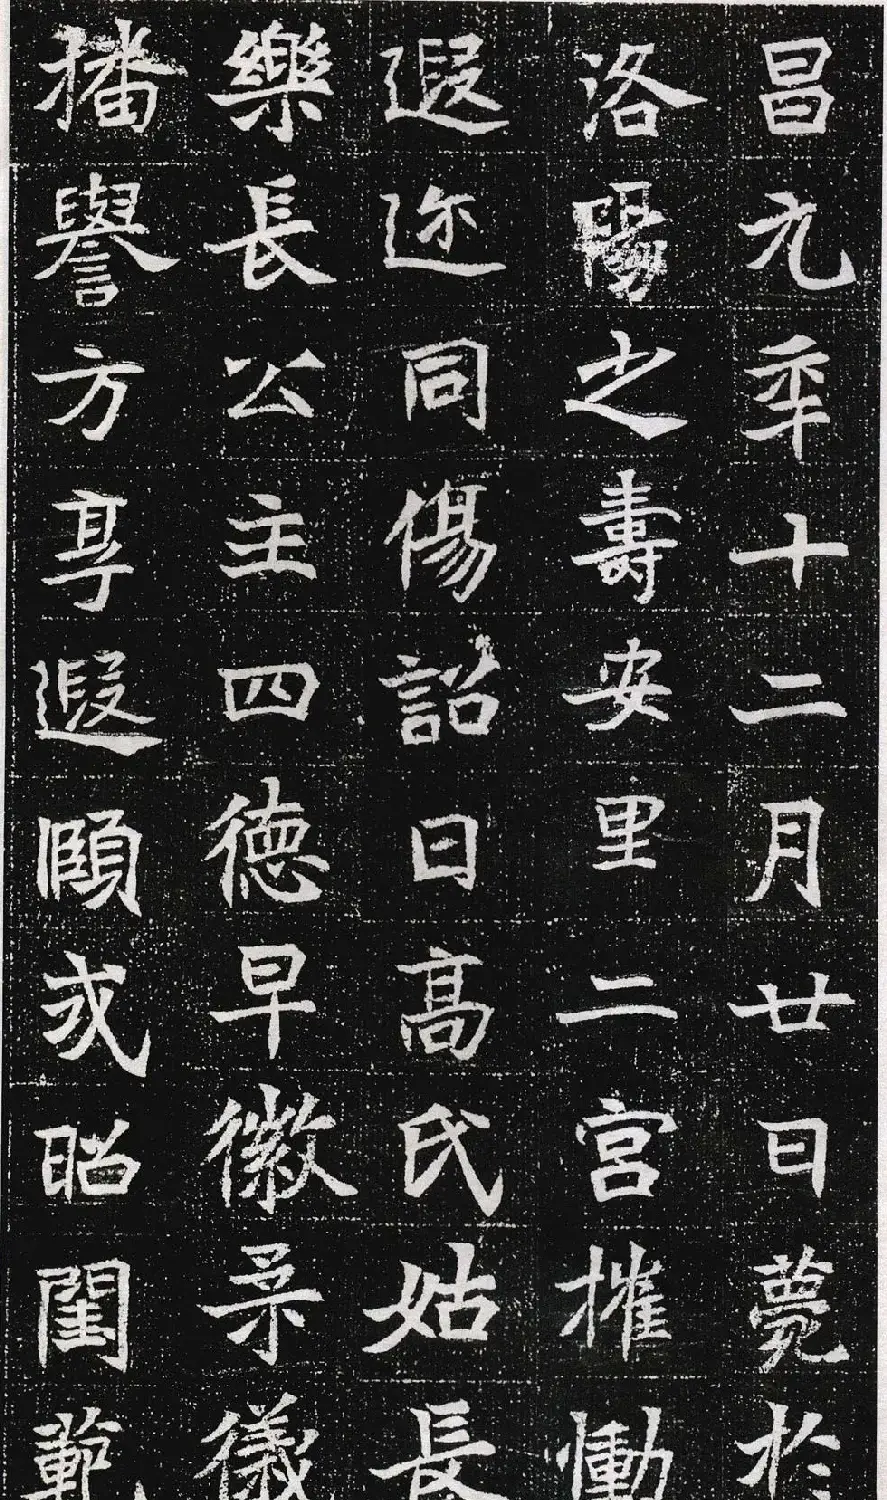 昌元年十二月廿日薨於
洛陽之壽安里二宮摧慟
遐迩同傷詔曰高氏姑長
樂長公主四德早徽柔儀
播譽方享遐頤或昭閨範